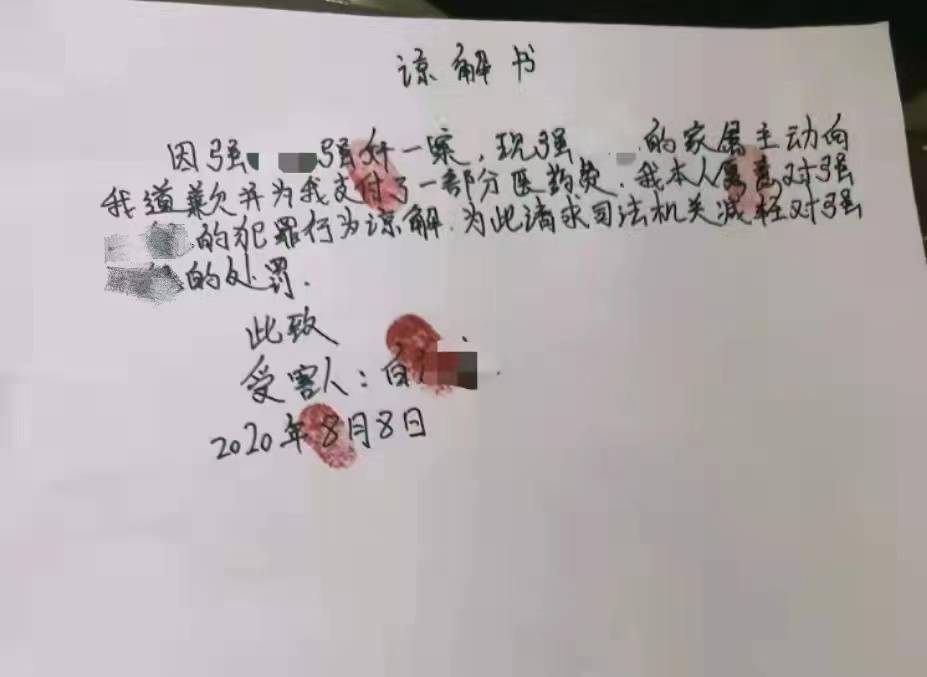 谅解书
因强 强奸一案，现强 的家属主动向
我道歉并为我支付了一部分医药费．我本人愿意对强
的犯罪行为谅解．为此请求司法机关减轻对强
的处罚．
此致
受害人：白
2020年8月8日